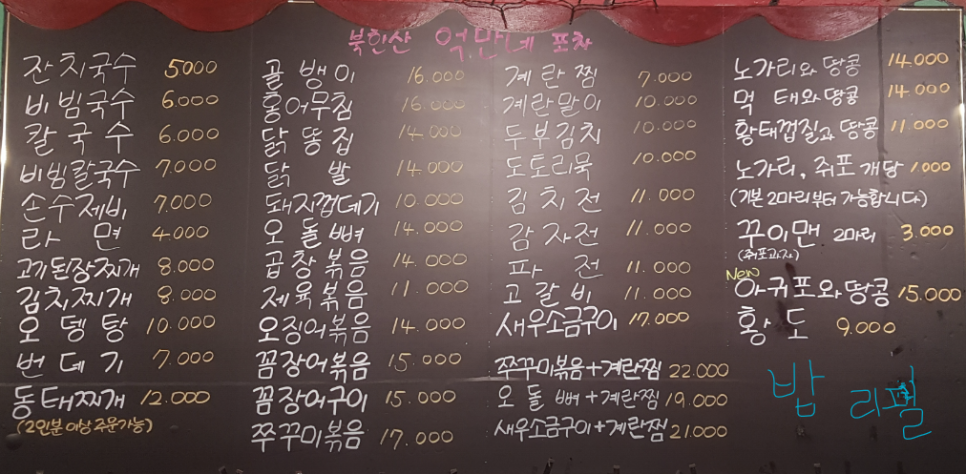 북한산 억만네 포차
잔치국수 5000
비빔국수 6.000
칼국수 6.000
비빔칼국수 7.000
손수제비 7.000
라면 4.000
고기된장찌개 8.000
김치찌개 8.000
오뎅탕 10.000
번데기 7.000
동태찌개 12.000
(2인분 이상 주문가능)
골뱅이 16.000
홍어무침 16.000
닭똥집 14.000
닭발 14.000
돼지껍데기 10.000
오돌뼈 14.000
곱창볶음 14.000
제육볶음 11.000
오징어볶음 14.000
꼼장어볶음 15.000
꼼장어구이 15.000
쭈꾸미볶음 17.000
계란찜 7.000
계란말이 10.000
두부김치 10.000
도토리묵 10.000
김치전 11.000
감자전 11.000
파전 11.000
고갈비 11.000
새우소금구이 17.000
쭈꾸미볶음+계란찜 22.000
오돌뼈+계란찜 19.000
새우소금구이+계란찜 21.000
노가리와 땅콩 14.000
먹태와땅콩 14.000
황태껍질과 땅콩 11.000
노가리, 쥐포 개당 1.000
(기본 2마리부터 가능합니다)
꾸이맨 2마리 3.000
(쥐포과자)
New
아귀포와땅콩 15.000
황도 9.000
밥 리필